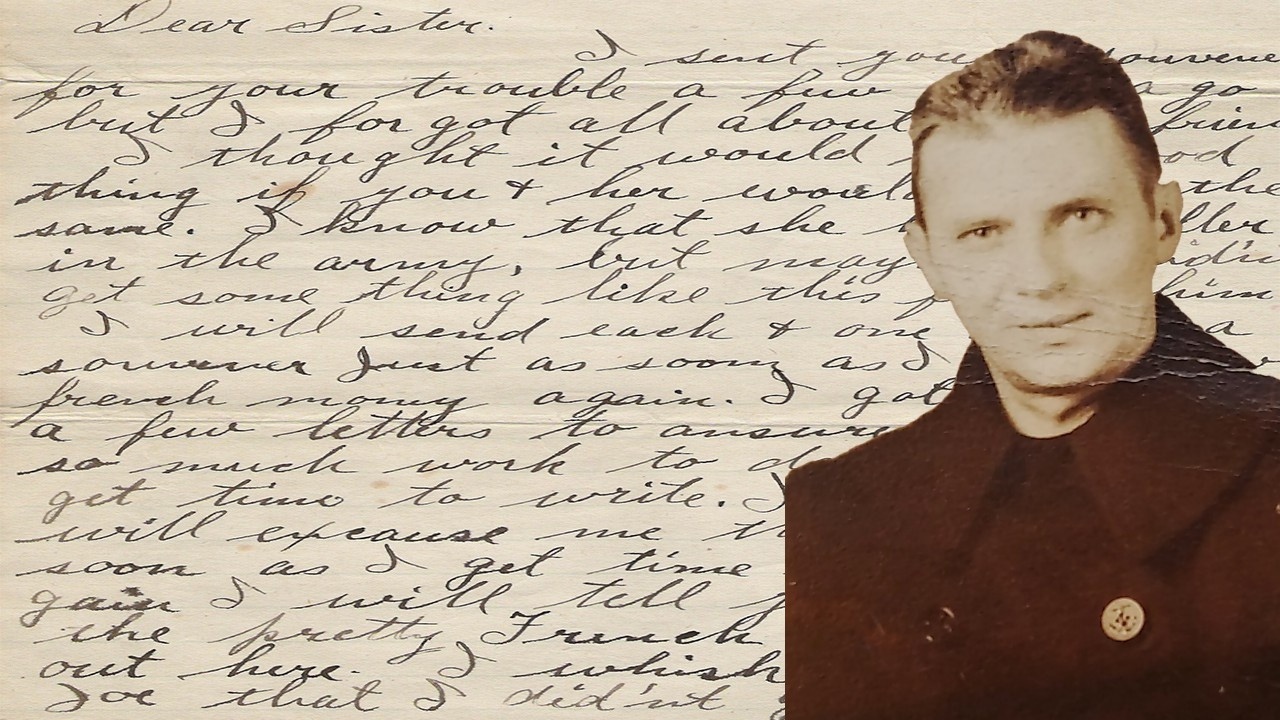 Dear Sister.
I sent you souvene
for your trouble a few a go
but I for got all about frien
I thought it would od
thing if you & her would the
same. I know that she h ller
in the army, but may did'n
get some thing like this f him
I will send each & one a
souvener Just as soon as I
french money again. I got
a few letters to answer
so much work to do
get time to write. I
will excause me th
soon as I get time
gain I will tell y
the pretty French
out here. I whish
Joe that I did'nt g